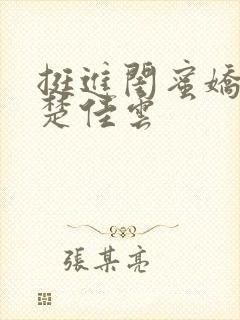 挺進閨蜜嬌
楚佳雲
張某亮